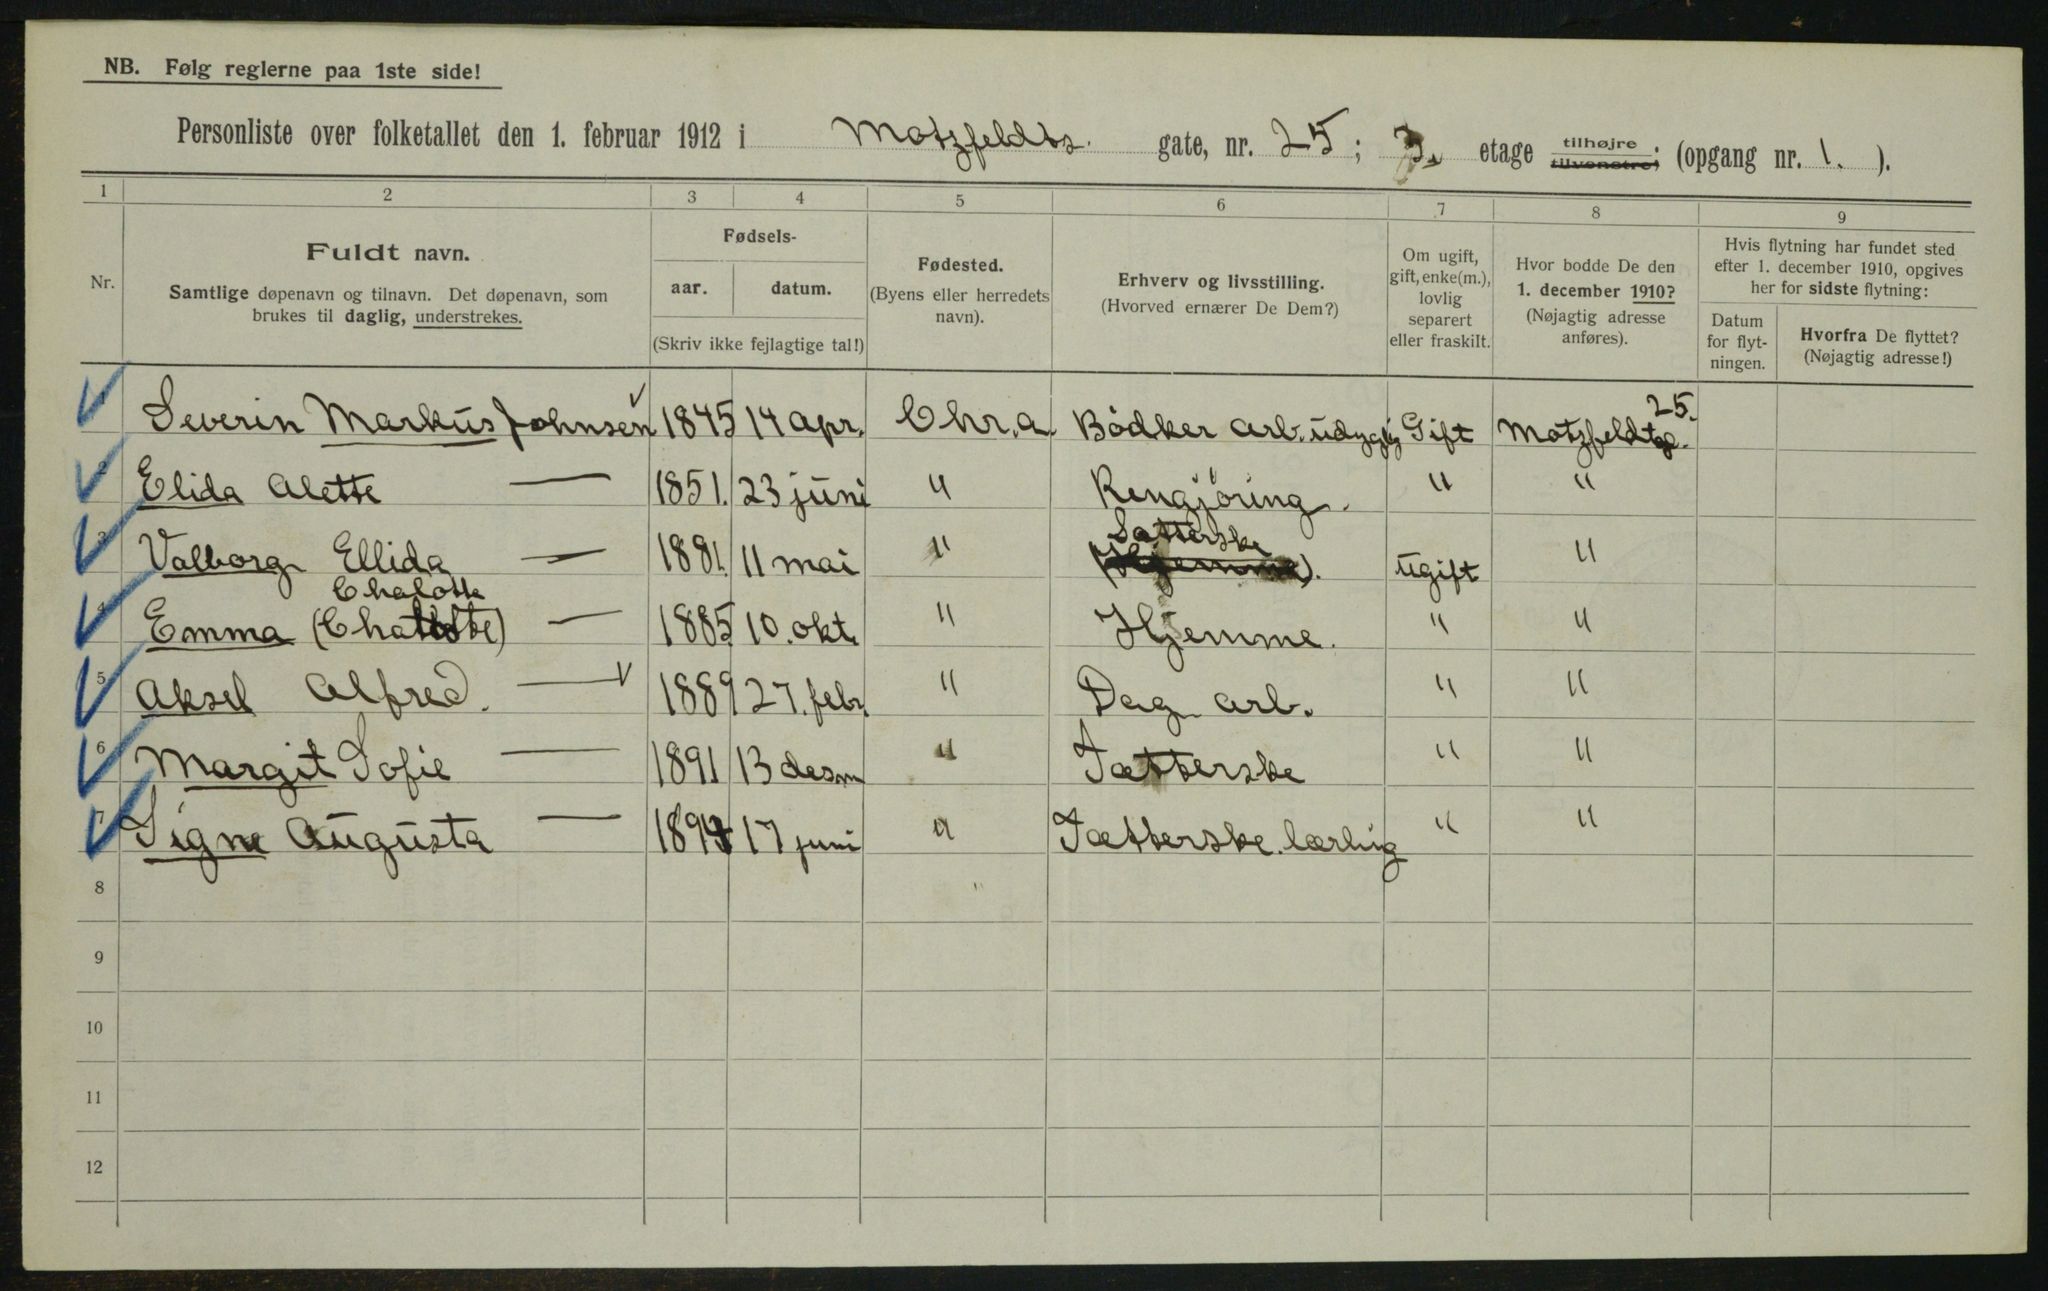 NB. Følg reglerne paa 1ste side!
Personliste over folketallet den 1. februar 1912 i Motzfeldts gate, nr. 25; 3. etage tilhøjre tilvenstre; (opgang nr. 1. ).
1 2 3 4 5 6 7 8 9
Nr. Fuldt navn. Samtlige døpenavn og tilnavn. Det døpenavn, som brukes til daglig, understrekes.
Fødsels- aar. datum. (Skriv ikke fejlagtige tal!)
Fødested. (Byens eller herredets navn).
Erhverv og livsstilling. (Hvorved ernærer De Dem?)
Om ugift, gift, enke(m.), lovlig separert eller fraskilt.
Hvor bodde De den 1. december 1910? (Nøjagtig adresse anføres).
Hvis flytning har fundet sted efter 1. december 1910, opgives her for sidste flytning:
Datum for flyt-ningen. Hvorfra De flyttet? (Nøjagtig adresse!)
Severin Markus Johnsen 1845 14 apr. Chr.a. Bödker arb. Gift Motzfeldtsg. 25.
2 Elida Alette — 1851. 23 juni " Rengjöring. " "
3 Valborg Ellida — 1881. 11 mai " Sætterske (Hjemme). ugift "
Chalotte
4 Emma (Chalotte) — 1885. 10. okt. " Hjemme. " "
5 Aksel Alfred. — 1889 27. febr. " Dag arb. " "
6 Margit Sofie — 1891 13 desm " Sætterske " "
7 Signe Augusta — 1894 17 juni " Sætterske. lærling " "
8
9
10
11
12